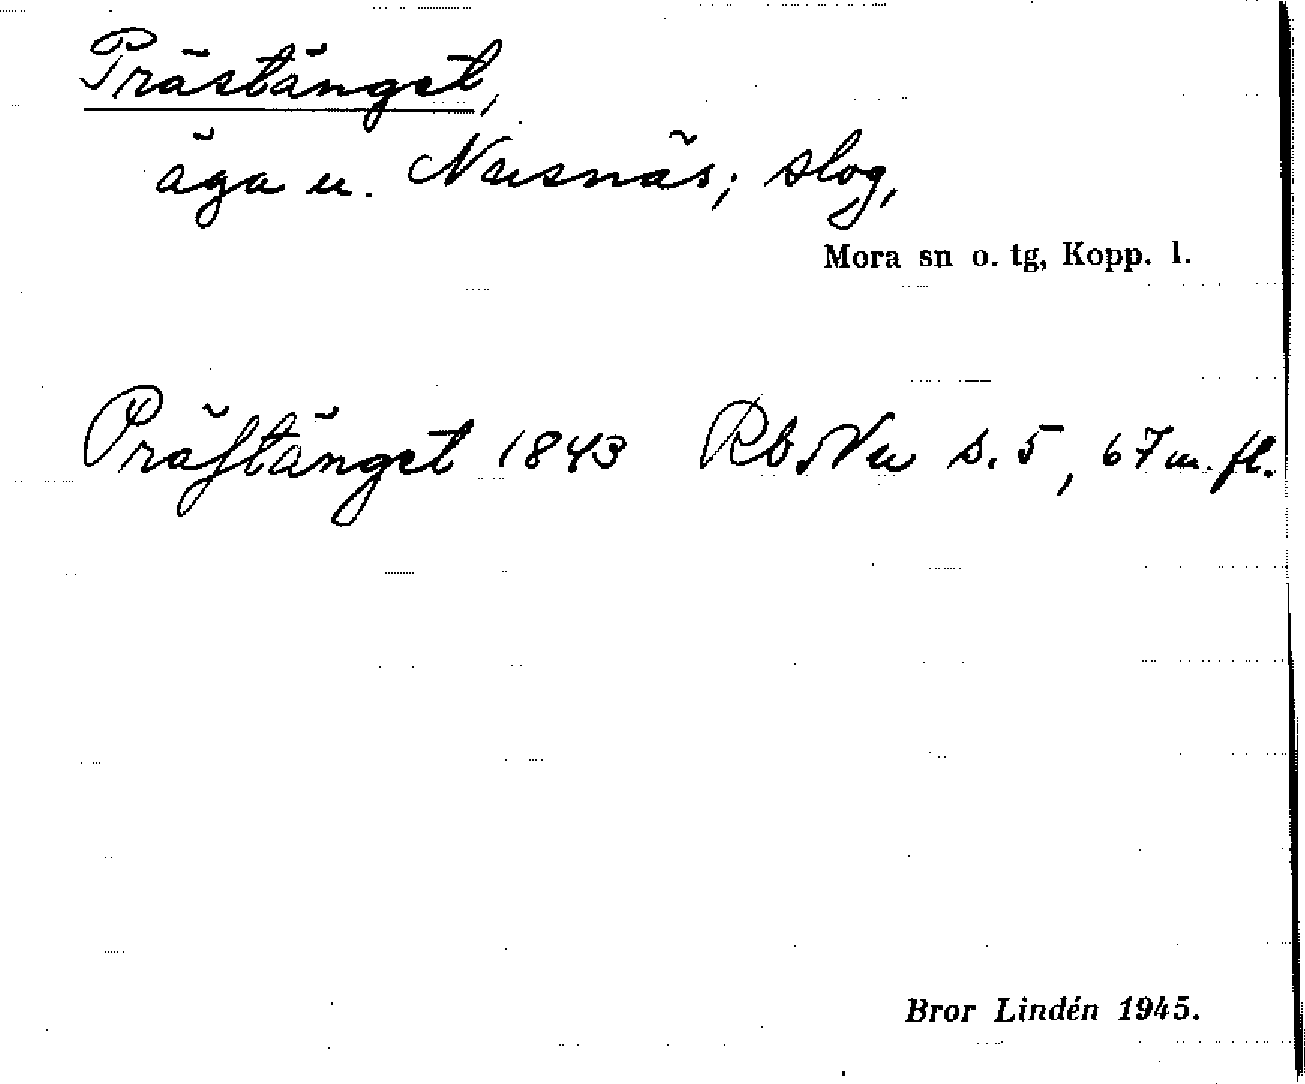 Prästänget,
äga u. Nusnäs; slog,
Mora sn o. tg, Kopp. l.
Präſtänget 1843 Rb Nu s. 5, 67 m. fl.
Bror Lindén 1945.